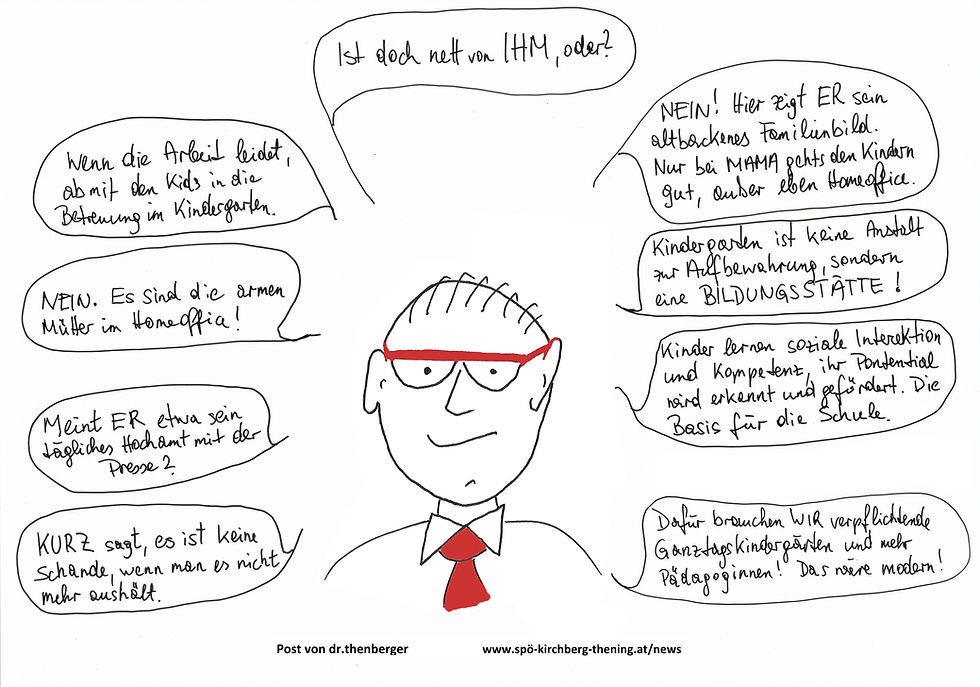 Ist doch nett von IHM, oder?
Wenn die Arbeit leidet,
ab mit den Kids in die
Betreuung im Kindergarten.
NEIN. Es sind die armen
Mütter im Homeoffice!
Meint ER etwa sein
tägliches Hochamt mit der
Presse?
KURZ sagt, es ist keine
Schande, wenn man es nicht
mehr aushält.
NEIN! Hier zeigt ER sein
altbackenes Familienbild.
Nur bei MAMA gehts den Kindern
gut, außer eben Homeoffice.
Kindergarten ist keine Anstalt
zur Aufbewahrung, sondern
eine BILDUNGSSTÄTTE!
Kinder lernen soziale Interaktion
und Kompetenz, ihr Pontential
wird erkannt und gefördert. Die
Basis für die Schule.
Dafür brauchen WIR verpflichtende
Ganztagskindergärten und mehr
Pädagoginnen! Das wäre modern!
Post von dr.thenberger www.spö-kirchberg-thening.at/news